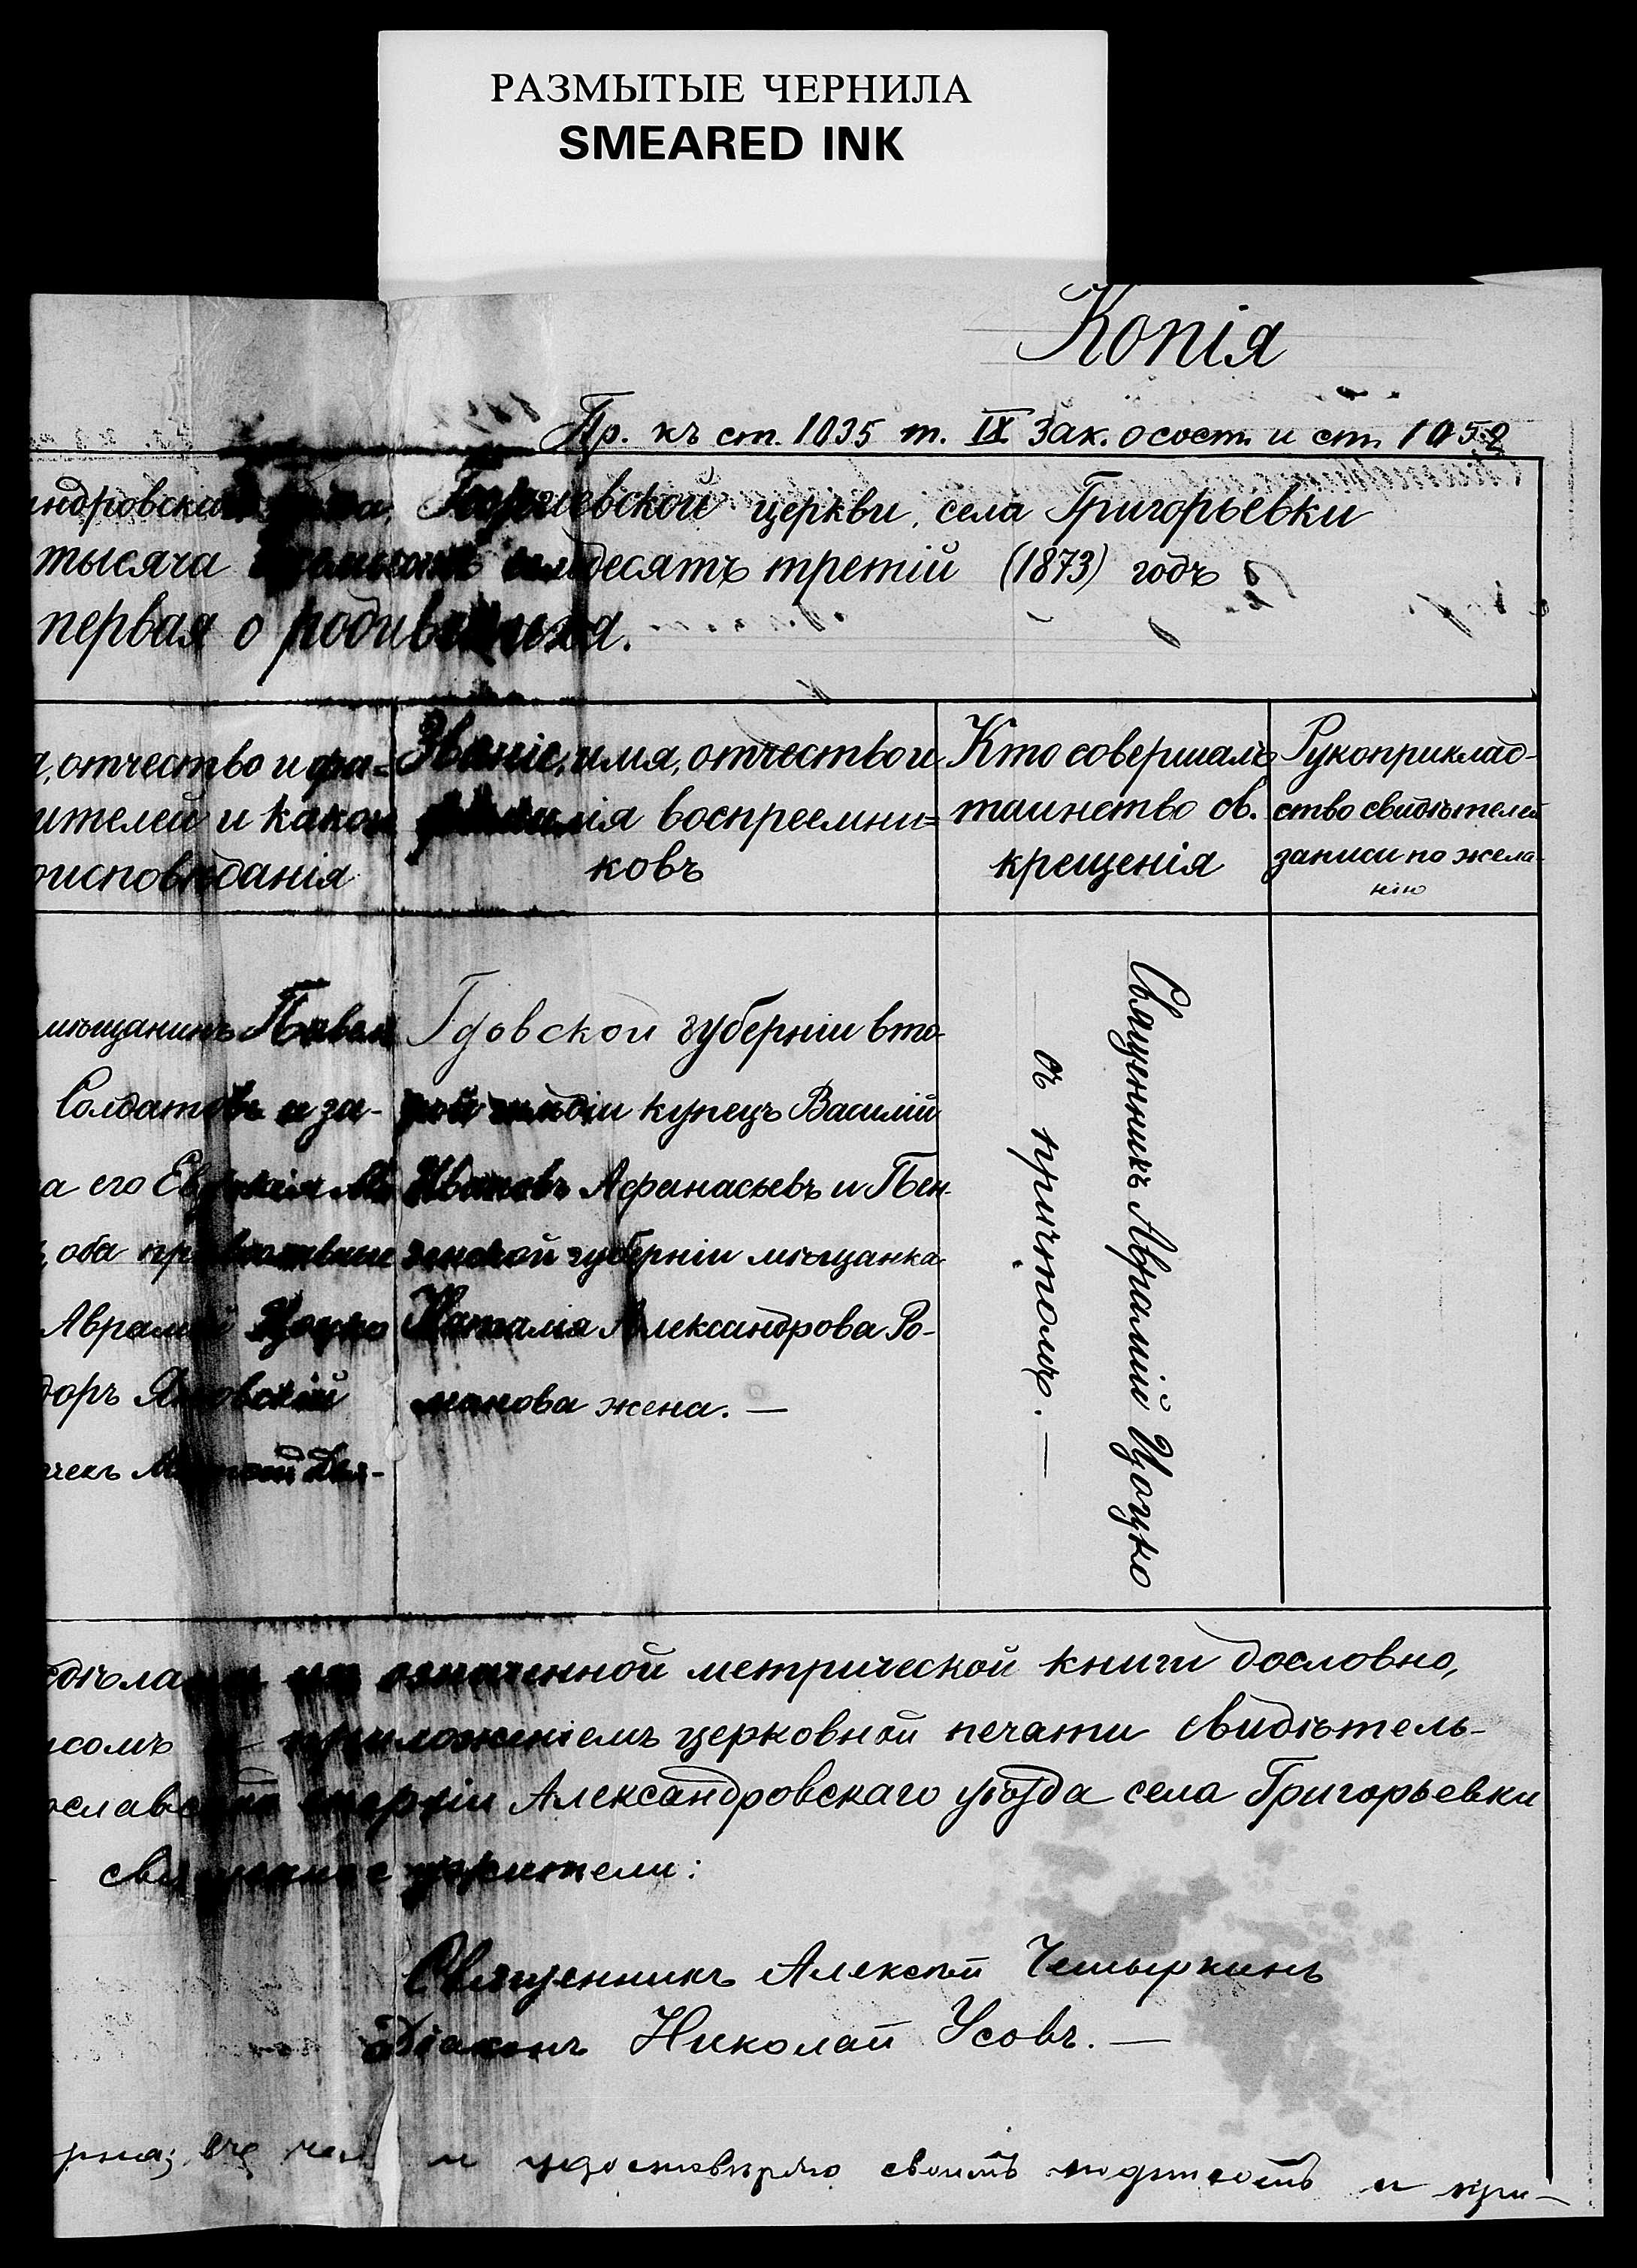 РАЗМЫТЫЕ ЧЕРНИЛА
SMEARED INK
Копія
Пр. къ ст. 1035 т. IX Зак. о сост. и ст. 1052
церкви, села Григорьевки
тысяча десятъ третій (1873) годъ
первая о родившихся.
отчество и фа-
ителей и какой
оисповѣданія
Званіе, имя, отчество и
фамилія воспреемни=
ковъ
Кто совершалъ
таинство св.
крещенія
Рукоприклад-
ство свидѣтелей
записи по жела-
нію
мѣщанинъ Павел
Солдатовъ и за-
а его
оба
Аврамій Цоцко
доръ
Гдовской губерніи вто-
рой гильдіи купецъ Василій
Ивановъ Афанасьевъ и Пен-
зенской губерніи мѣщанка
Наталія Александрова Ро-
манова жена. —
Священникъ Аврамій Цоцко
съ причтомъ. —
означенной метрической книги дословно,
приложеніемъ церковной печати свидѣтель-
епархіи Александровскаго уѣзда села Григорьевки
служители:
Священникъ Алексѣй Чемыркинъ
Діаконъ Николай Усовъ. —
и удостовѣряю своимъ подписомъ и при-